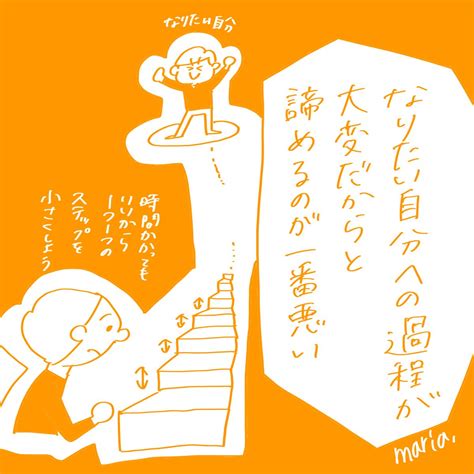 なりたい自分
なりたい自分への過程が
大変だからと
諦めるのが一番悪い
時間かかっても
いいから
一つ一つの
ステップを
小さくしよう
maria.